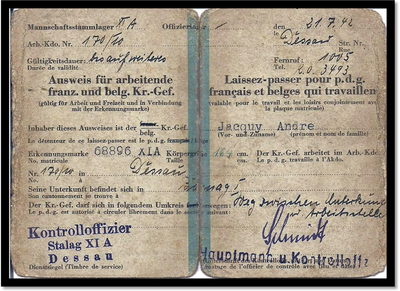 Mannschaftsstammlager XI A Offizierlager - den 31.7.42
Arb.-Kdo. Nr. 170/10 Dessau
Str. Nr.
Gültigkeitsdauer: bis auf weiteres Ruc: 1005
Durée de validité Fernruf: 3493
Tel.
Ausweis für arbeitende
franz. und belg. Kr.-Gef.
(gültig für Arbeit und Freizeit und in Verbindung
mit der Erkennungsmarke)
Laissez-passer pour p.d.g.
français et belges qui travaillen
(valable pour le travail et les loisirs conjointement avec
la plaque matricule)
Inhaber dieses Ausweises ist der Kr.-Gef. Jacquy Andre
belg. (Vor- und Zuname) (prénom et nom de famille)
Le détenteur de ce laissez-passer est le
Erkennungsmarke 68896 XIA Körpergröße cm. Der Kr.-Gef. arbeitet im Arb.-Kdo.
No matricule Taille Cm. Le p.d.g. travaille à l'Akdo.
Nr. 170/10 in Dessau
No
Seine Unterkunft befindet sich in
Son cantonnement se trouve
Der Kr.-Gef. darf sich in folgendem Umkreis bewegen: Weg zwischen Unterkunft
Le p.d.g. est autorisé à circuler librement dans le secteur suivant: u. Arbeitsstelle
Kontrolloffizier
Stalag XI A
Dessau
Dienstsiegel (Timbre de service)
Schmidt
Hauptmann u. Kontrolloffz.